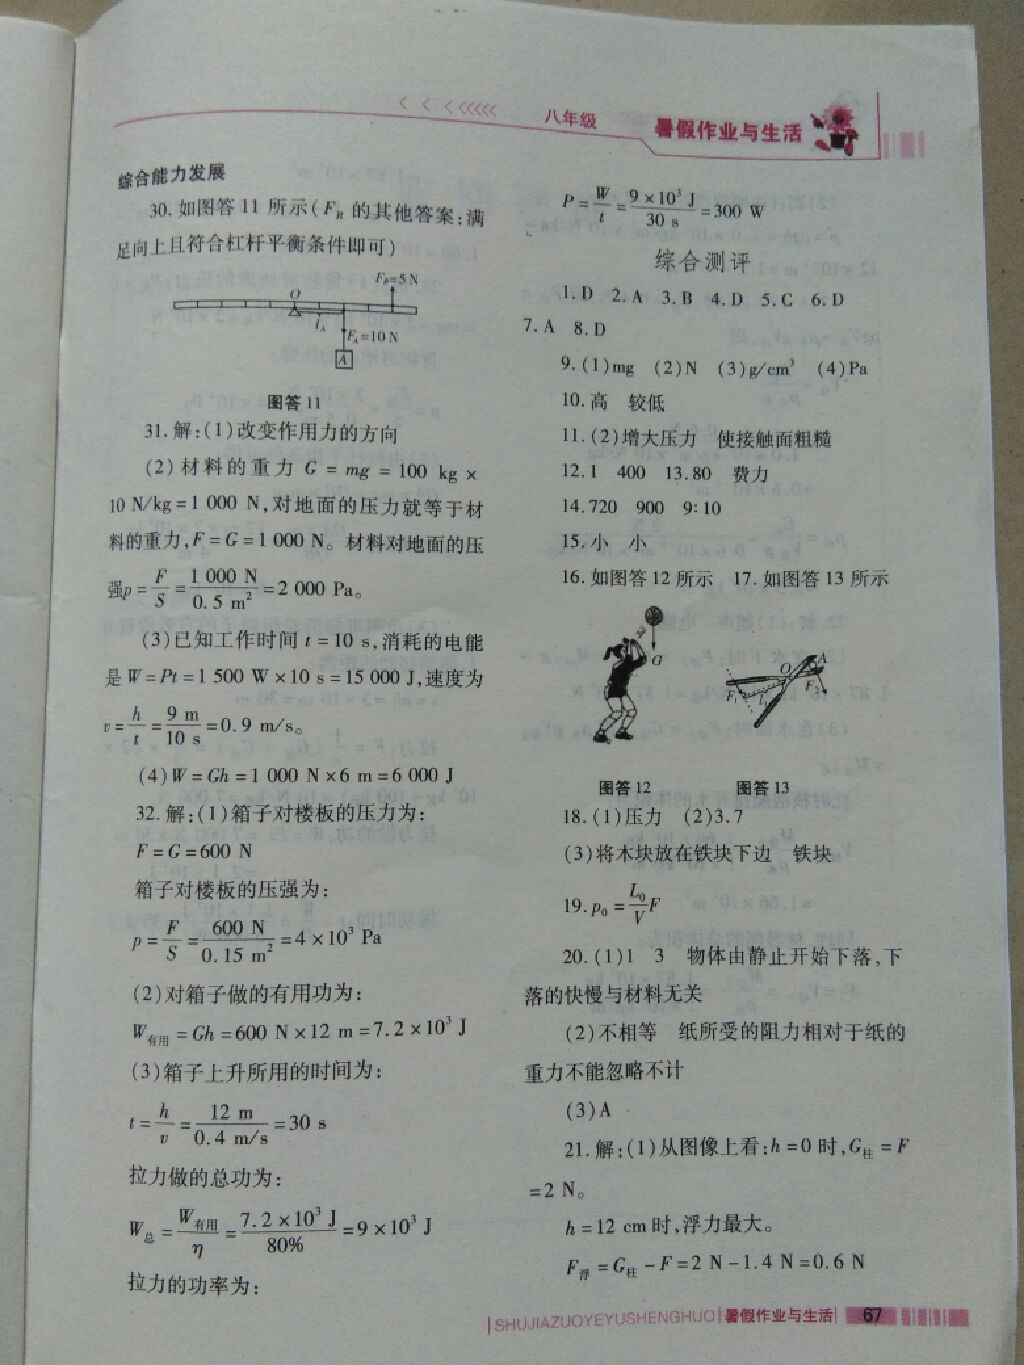 八年级 暑假作业与生活
综合能力发展
30. 如图答11 所示(F_B 的其他答案:满
足向上且符合杠杆平衡条件即可)
F_B=5 N
O
l_A
F_A=10 N
A
图答11
31. 解:(1)改变作用力的方向
(2)材料的重力 G = mg = 100 kg ×
10 N/kg = 1 000 N,对地面的压力就等于材
料的重力,F = G = 1 000 N。材料对地面的压
强p = F/S = 1 000 N/0.5 m² = 2 000 Pa。
(3)已知工作时间 t = 10 s,消耗的电能
是 W = Pt = 1 500 W × 10 s = 15 000 J,速度为
v = h/t = 9 m/10 s = 0.9 m/s。
(4)W = Gh = 1 000 N × 6 m = 6 000 J
32. 解:(1)箱子对楼板的压力为:
F = G = 600 N
箱子对楼板的压强为:
p = F/S = 600 N/0.15 m² = 4 × 10³ Pa
(2)对箱子做的有用功为:
W有用 = Gh = 600 N × 12 m = 7.2 × 10³ J
(3)箱子上升所用的时间为:
t = h/v = 12 m/0.4 m/s = 30 s
拉力做的总功为:
W总 = W有用/η = 7.2 × 10³ J/80% = 9 × 10³ J
拉力的功率为:
P = W/t = 9 × 10³ J/30 s = 300 W
综合测评
1. D 2. A 3. B 4. D 5. C 6. D
7. A 8. D
9. (1)mg (2)N (3)g/cm³ (4)Pa
10. 高 较低
11. (2)增大压力 使接触面粗糙
12. 1 400 13. 80 费力
14. 720 900 9:10
15. 小 小
16. 如图答12 所示 17. 如图答13 所示
G
O A
F₁ l₁ F₂
图答12 图答13
18. (1)压力 (2)3.7
(3)将木块放在铁块下边 铁块
19. p₀ = L₀/V F
20. (1)1 3 物体由静止开始下落,下
落的快慢与材料无关
(2)不相等 纸所受的阻力相对于纸的
重力不能忽略不计
(3)A
21. 解:(1)从图像上看:h = 0 时,G柱 = F
= 2 N。
h = 12 cm 时,浮力最大。
F浮 = G柱 - F = 2 N - 1.4 N = 0.6 N
SHUJIAZUOYEYUSHENGHUO 暑假作业与生活 67